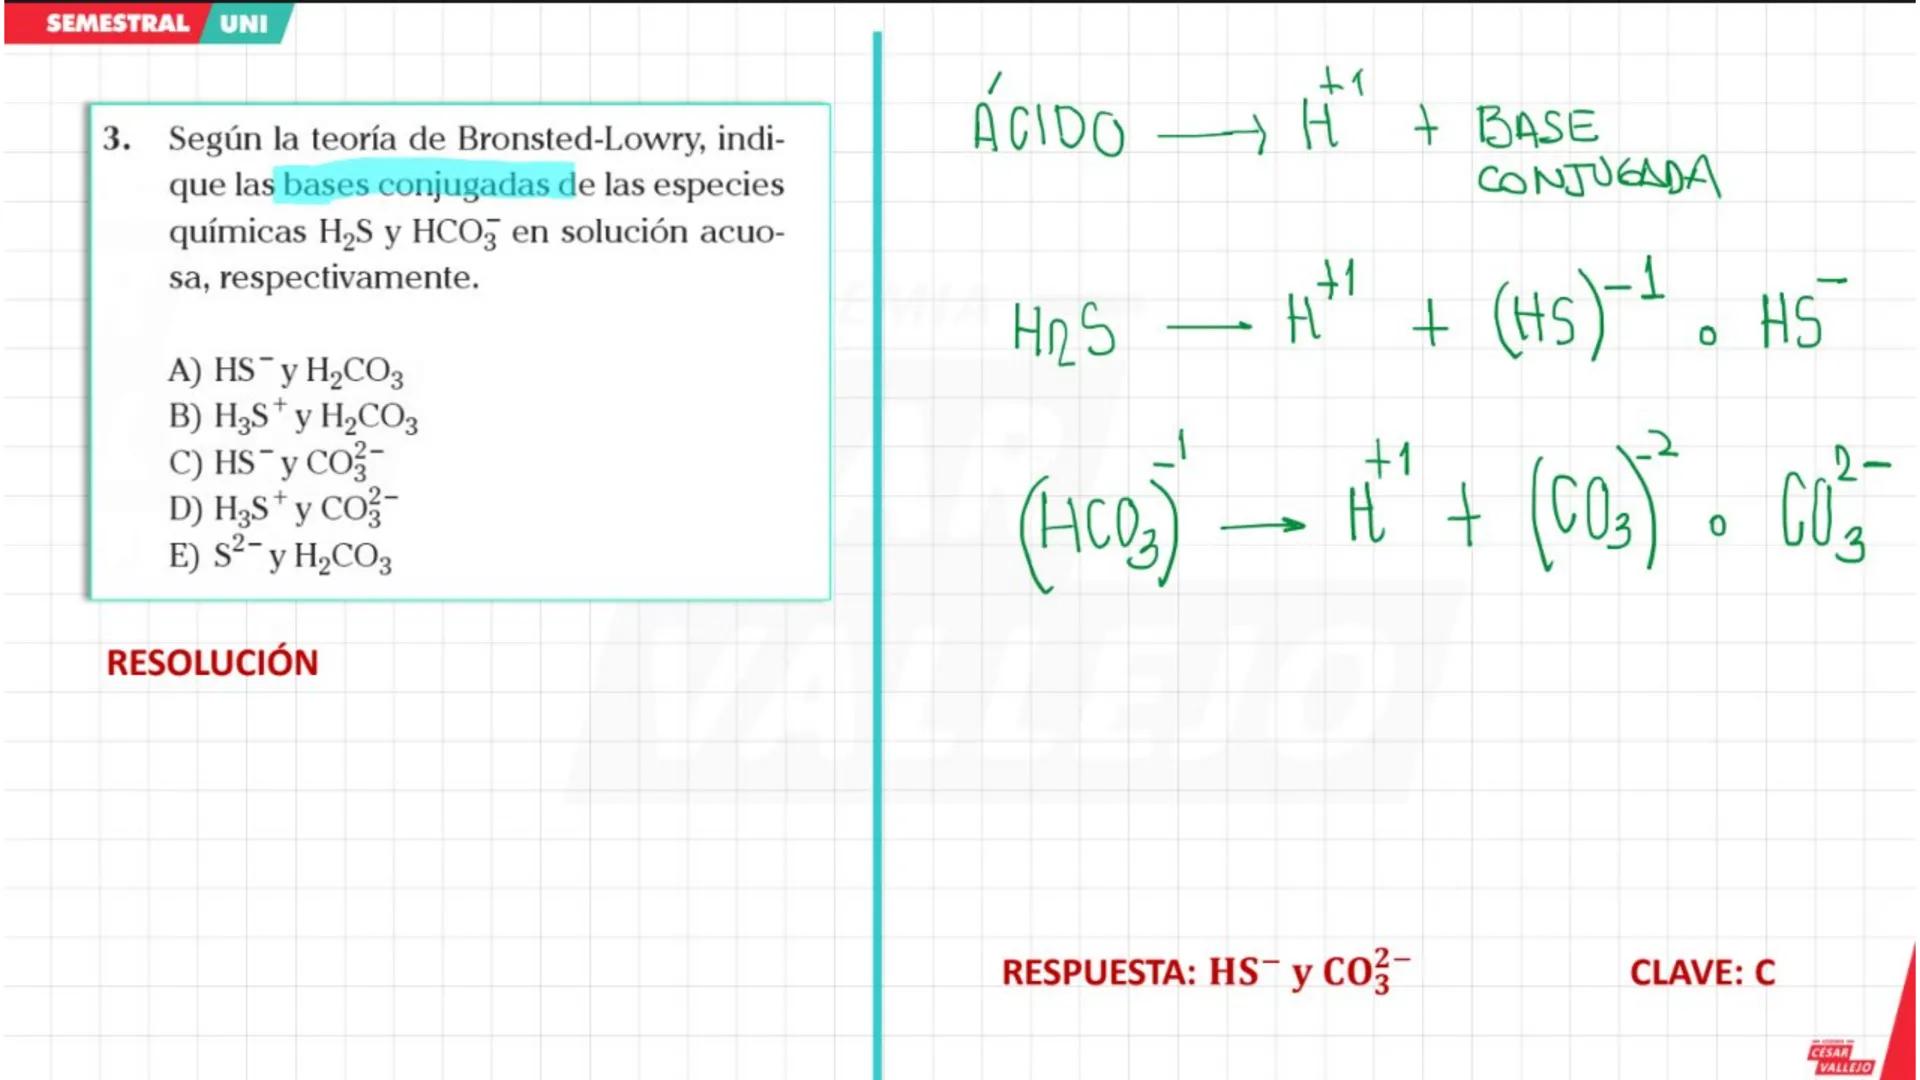 SEMESTRAL UNI
3. Según la teoría de Bronsted-Lowry, indi-
que las bases conjugadas de las especies
químicas H₂S y HCO₃⁻ en solución acuo-
sa, respectivamente.
A) HS⁻ y H₂CO₃
B) H₃S⁺ y H₂CO₃
C) HS⁻ y CO₃²⁻
D) H₃S⁺ y CO₃²⁻
E) S²⁻ y H₂CO₃
RESOLUCIÓN
ÁCIDO → H⁺¹ + BASE
CONJUGADA
H₂S → H⁺¹ + (HS)⁻¹ ∘ HS⁻
(HCO₃)⁻¹ → H⁺¹ + (CO₃)⁻² ∘ CO₃²⁻
RESPUESTA: HS⁻ y CO₃²⁻ CLAVE: C
CÉSAR
VALLEJO